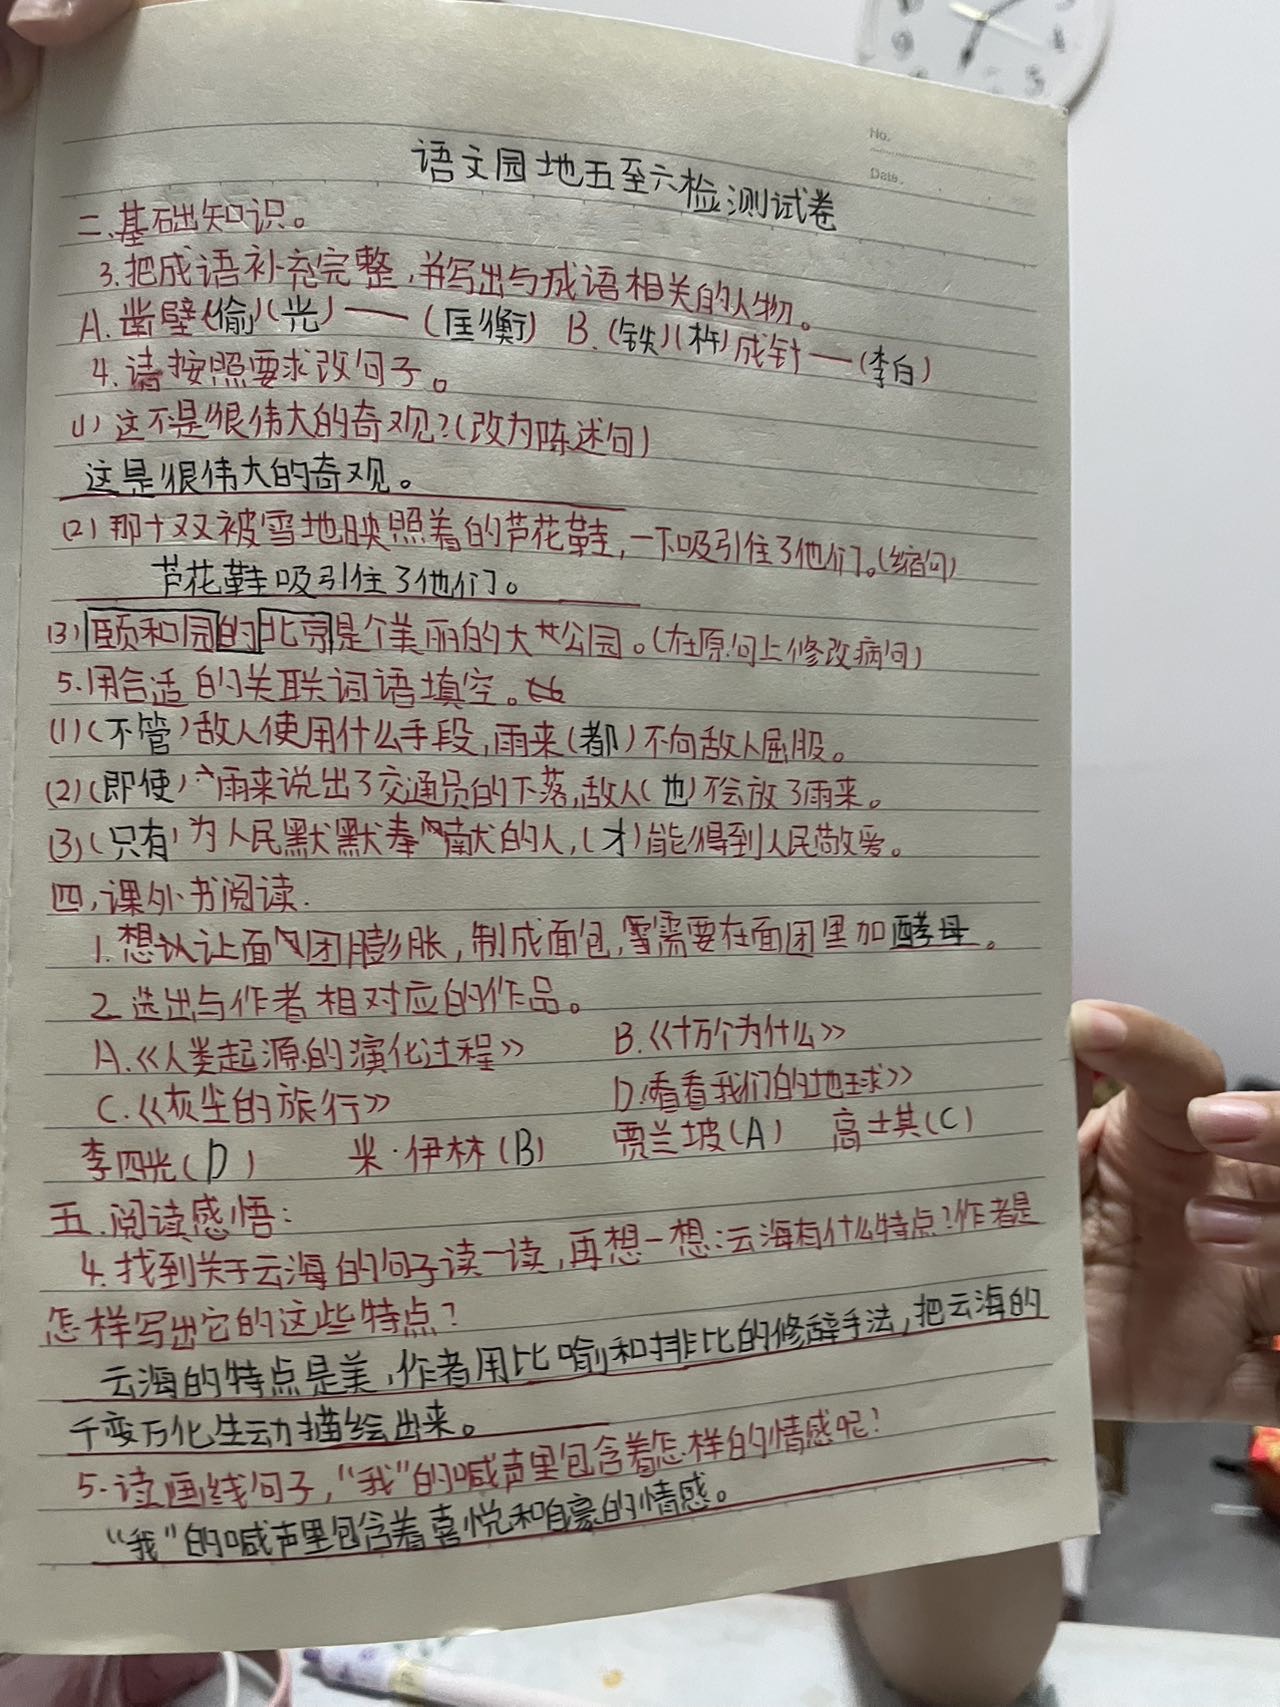 No.
Date.
语文园地五至六检测试卷
二、基础知识。
3.把成语补充完整,并写出与成语相关的人物。
A.凿壁(偷)(光)——(匡衡) B.(铁)(杵)成针——(李白)
4.请按照要求改句子。
(1)这不是很伟大的奇观?(改为陈述句)
这是很伟大的奇观。
(2)那十双被雪地映照着的芦花鞋,一下吸引住了他们。(缩句)
芦花鞋吸引住了他们。
(3)颐和园的北京是个美丽的大公园。(在原句上修改病句)
5.用合适的关联词语填空。
(1)(不管)敌人使用什么手段,雨来(都)不向敌人屈服。
(2)(即使)雨来说出了交通员的下落,敌人(也)不会放了雨来。
(3)(只有)为人民默默奉献的人,(才)能得到人民敬爱。
四,课外书阅读.
1.想认让面团膨胀,制成面包,需要在面团里加酵母。
2.选出与作者相对应的作品。
A.《人类起源的演化过程》 B.《十万个为什么》
C.《灰尘的旅行》 D.《看看我们的地球》
李四光(D) 米·伊林(B) 贾兰坡(A) 高士其(C)
五.阅读感悟:
4.找到关于云海的句子读一读,再想一想:云海有什么特点?作者是
怎样写出它的这些特点?
云海的特点是美,作者用比喻和排比的修辞手法,把云海的
千变万化生动描绘出来。
5.读画线句子,“我”的喊声里包含着怎样的情感呢?
“我”的喊声里包含着喜悦和自豪的情感。